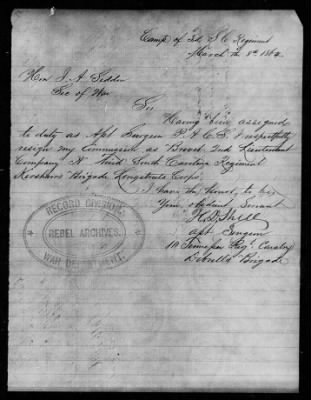 Camp of 3d, S. C Regiment
March the 8th 1864
Hon J. A. Seddon
Sec of War
Sir
Having been assigned
to duty as Asst Surgeon P. A. C. S. I respectfully
resign my Commission as Brevet 2nd Lieutenant
Company "A" Third South Carolina Regiment
Kershaws Brigade Longstreets Corps.
I have the honor, to be,
Your obedient Servant
Asst Surgeon
Regt Cavalry
Brigade
RECORD DIVISION
REBEL ARCHIVES.
WAR DEPARTMENT.